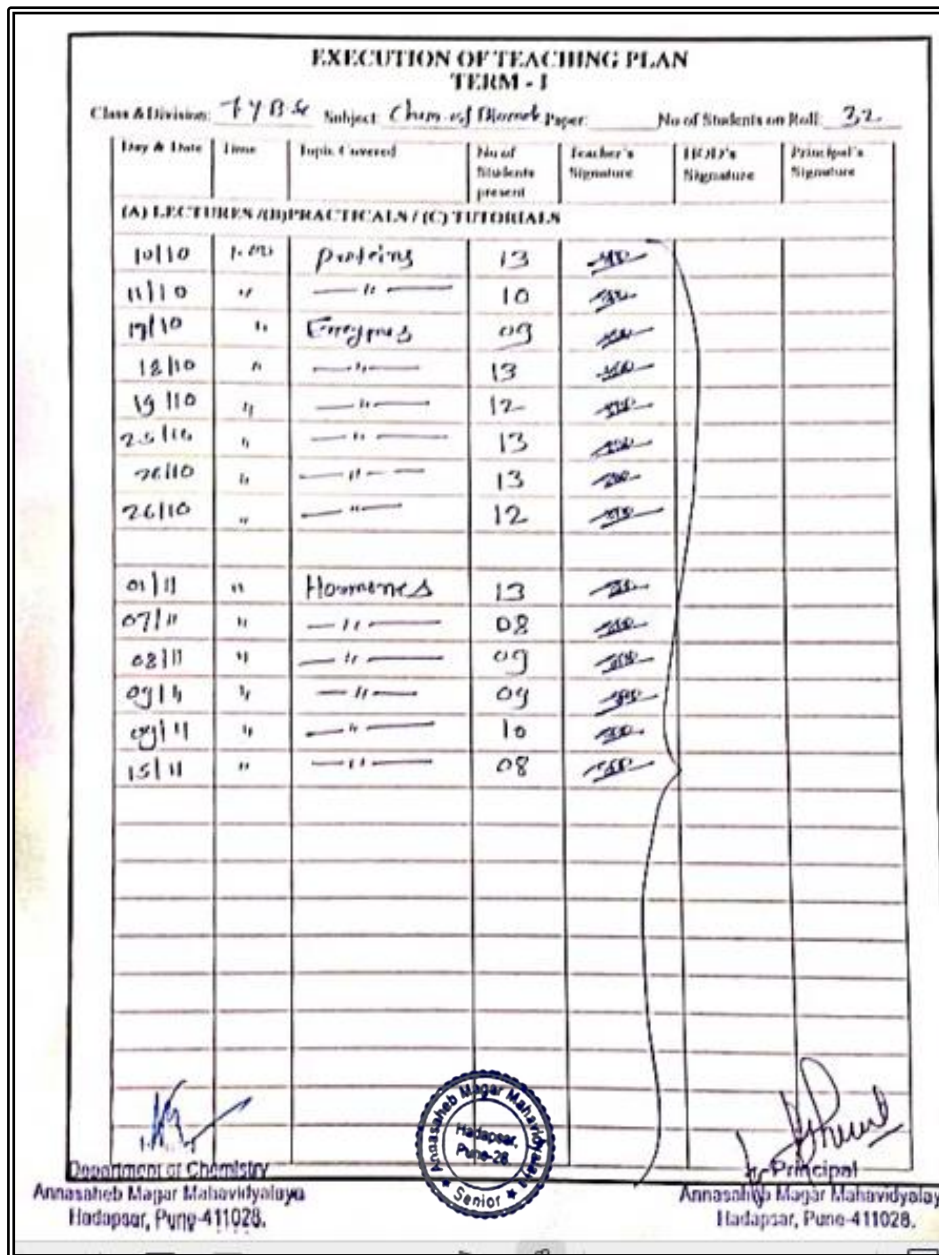 EXECUTION OF TEACHING PLAN
TERM - I
Class & Division: TYBSc Subject: Chem. of Paper: No of Students on Roll: 32
Day & Date Time Topic Covered No of Students present Teacher's Signature HOD's Signature Principal's Signature
(A) LECTURES /(B)PRACTICALS / (C) TUTORIALS
10/10 Proteins 13
11/10 " — " — 10
17/10 " Enzymes 09
18/10 " — " — 13
19/10 " — " — 12
25/10 " — " — 13
26/10 " — " — 13
26/10 " — " — 12
01/11 " Hormones 13
07/11 " — " — 08
08/11 " — " — 09
09/11 " — " — 09
09/11 " — " — 10
15/11 " — " — 08
Annasaheb Magar Mahavidyalaya
Hadapsar,
Pune-28
★ Senior ★
Department of Chemistry
Annasaheb Magar Mahavidyalaya
Hadapsar, Pune-411028.
Principal
Annasaheb Magar Mahavidyalay
Hadapsar, Pune-411028.